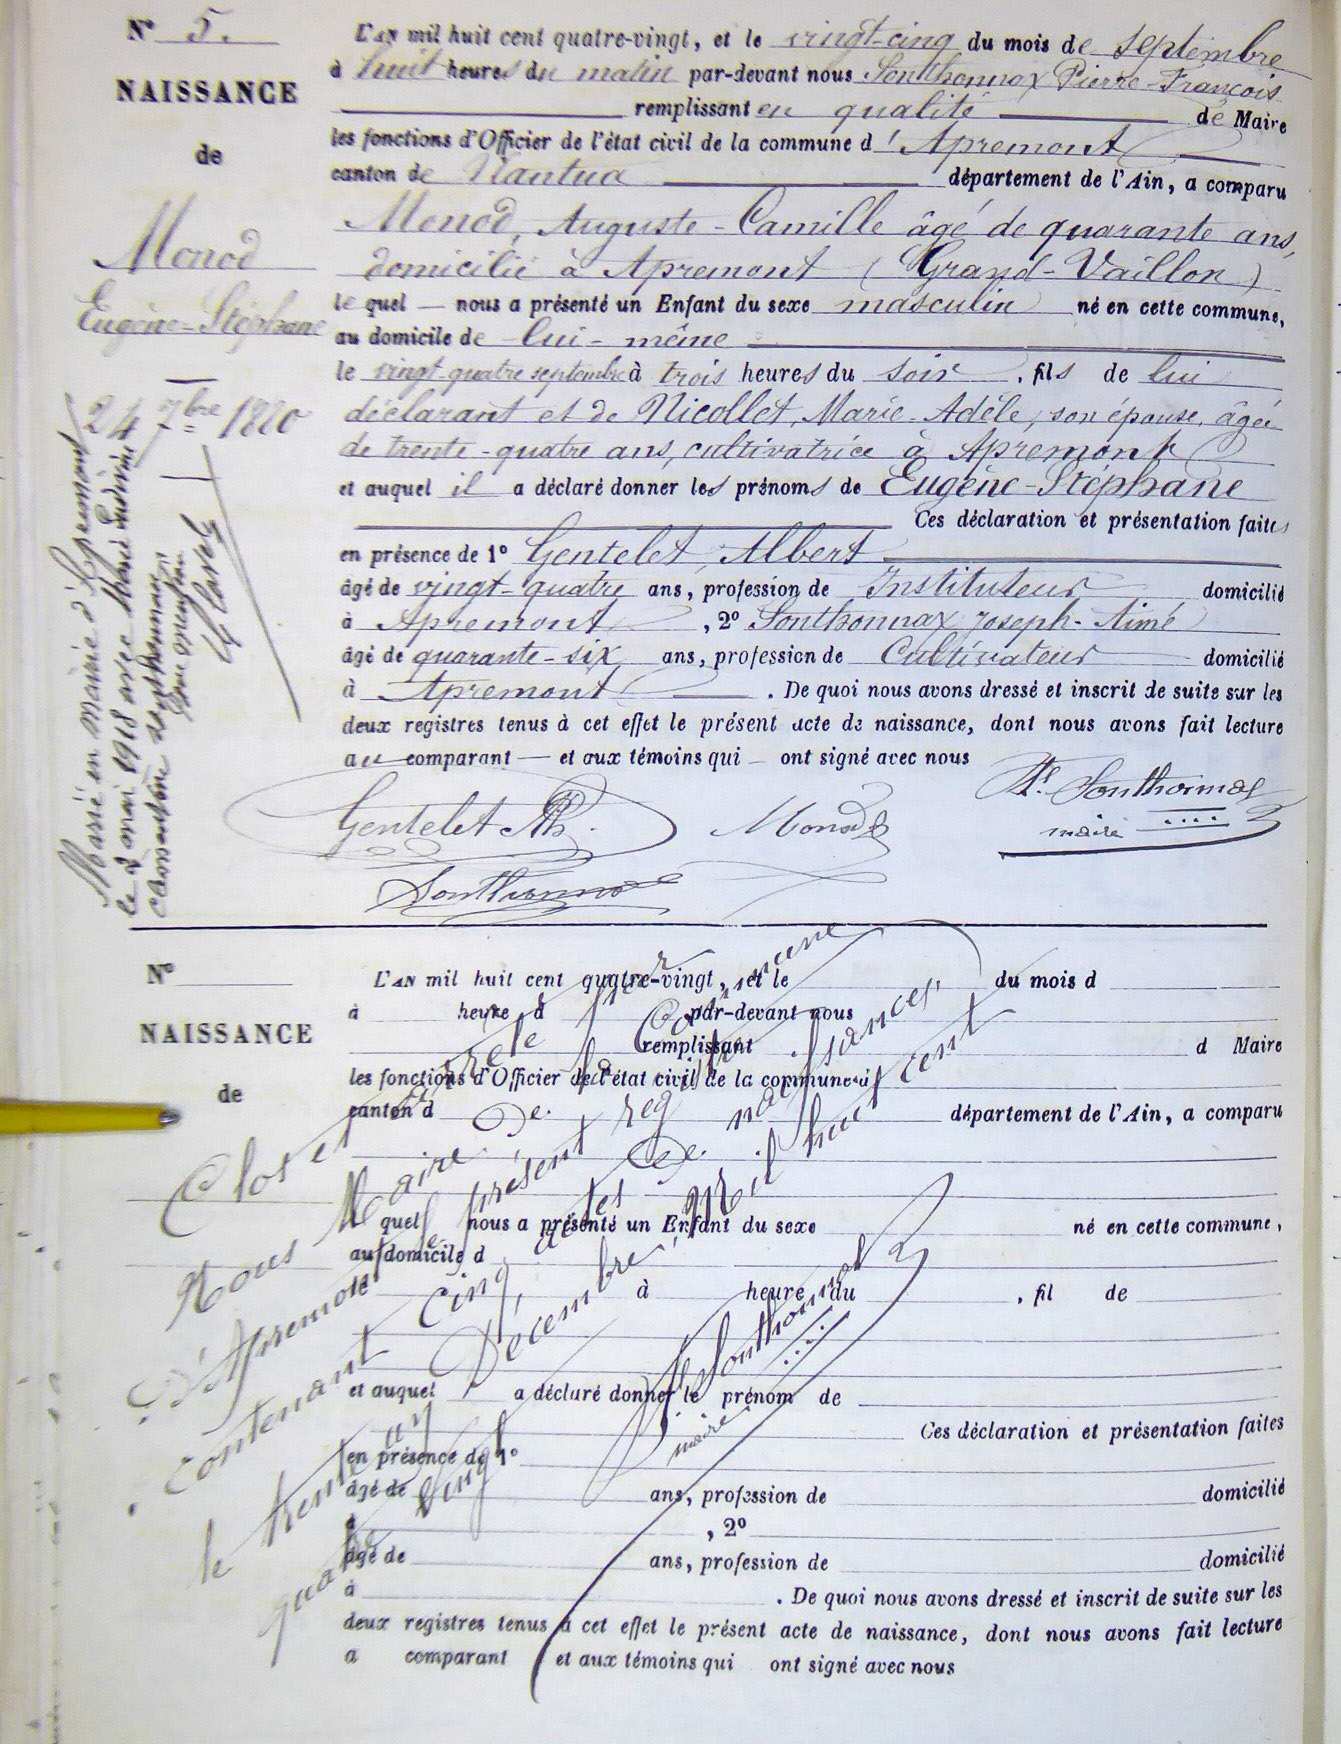 N° 5.
NAISSANCE
de
Monod
Eugène-Stéphane
24 7bre 1880
Marié en mairie d'Apremont
le 2 mai 1918 avec Marie
Sonthonnax
L'AN mil huit cent quatre-vingt, et le vingt-cinq du mois de septembre
à huit heures du matin par-devant nous Sonthonnax Pierre-François
remplissant en qualité de Maire
les fonctions d'Officier de l'état civil de la commune d'Apremont
canton de Nantua département de l'Ain, a comparu
Monod, Auguste-Camille âgé de quarante ans,
domicilié à Apremont (Grand-Vaillon)
lequel — nous a présenté un Enfant du sexe masculin né en cette commune,
au domicile de lui-même
le vingt-quatre septembre à trois heures du soir, fils de lui
déclarant et de Nicollet, Marie-Adèle, son épouse, âgée
de trente-quatre ans, cultivatrice à Apremont
et auquel il a déclaré donner les prénoms de Eugène-Stéphane
Ces déclaration et présentation faites
en présence de 1° Gentelet, Albert
âgé de vingt-quatre ans, profession de Instituteur domicilié
à Apremont, 2° Sonthonnax Joseph-Aimé
âgé de quarante-six ans, profession de Cultivateur domicilié
à Apremont. De quoi nous avons dressé et inscrit de suite sur les
deux registres tenus à cet effet le présent acte de naissance, dont nous avons fait lecture
au comparant — et aux témoins qui — ont signé avec nous
Gentelet Monod Sonthonnax
maire
Sonthonnax
N°
NAISSANCE
de
L'AN mil huit cent quatre-vingt, et le du mois d
à heure d par-devant nous
remplissant d Maire
les fonctions d'Officier de l'état civil de la commune d
canton d département de l'Ain, a comparu
quel nous a présenté un Enfant du sexe né en cette commune,
au domicile d
le à heure du , fil de
et auquel a déclaré donner le prénom de
Ces déclaration et présentation faites
en présence de 1°
âgé de ans, profession de domicilié
à , 2°
âgé de ans, profession de domicilié
à . De quoi nous avons dressé et inscrit de suite sur les
deux registres tenus à cet effet le présent acte de naissance, dont nous avons fait lecture
a comparant et aux témoins qui ont signé avec nous
Clos et arrêté par
Nous Maire de la Commune
d'Apremont le présent registre
contenant cinq actes de naissances,
le trente un Décembre, mil huit cent
quatre vingt
Sonthonnax
maire